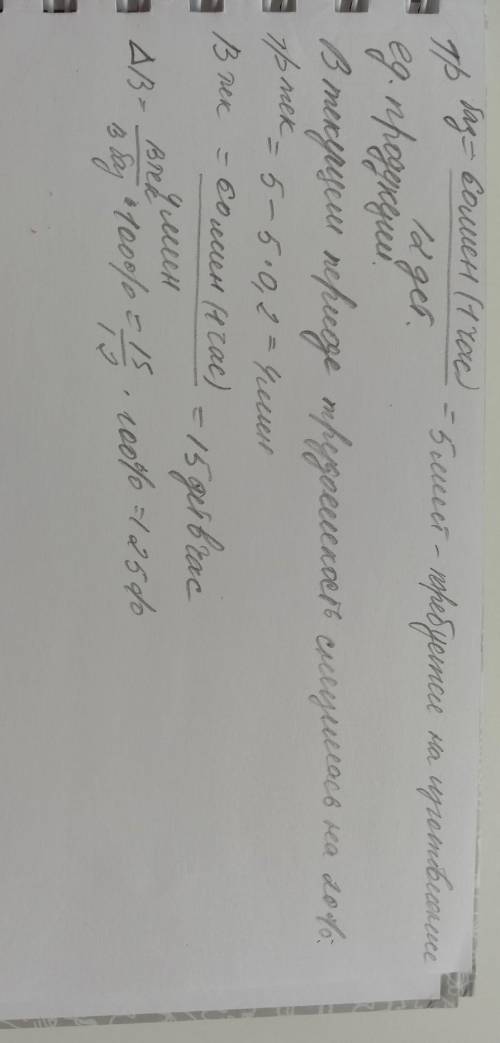 Тр баз = 60 мин (1 час) = 5 мин - требуется на изготовление
12 дет.
ед. продукции.
В текущем периоде трудоемкость снизилась на 20%.
Тр тек = 5 - 5 · 0,2 = 4 мин
В тек = 60 мин (1 час) = 15 дет в час
4 мин
ΔВ = В тек · 100% = 15 · 100% = 125%
В баз 12